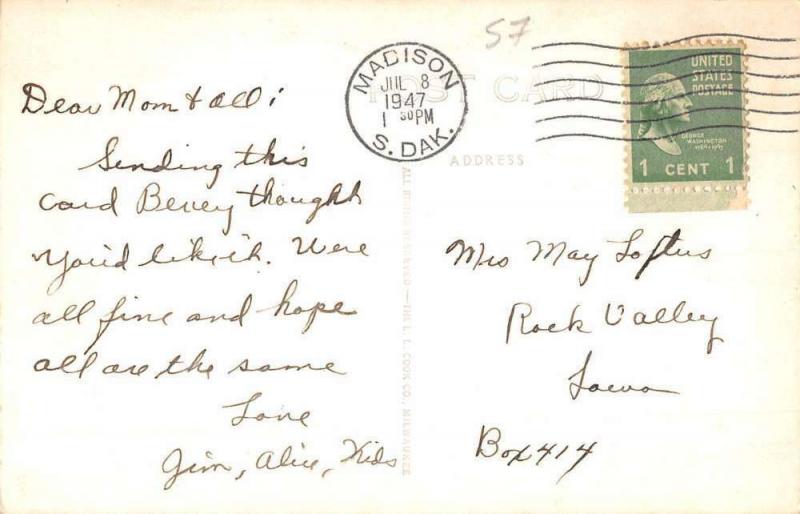 57
MADISON
JUL 8
1947
1 30 PM
S. DAK.
POST CARD
ADDRESS
UNITED
STATES
POSTAGE
GEORGE
WASHINGTON
1789-1797
1 CENT 1
Dear Mom & all:
Sending this
card Bevey thought
you'd like it. Were
all fine and hope
all are the same
Love
Jim, Alice, Kids
ALL RIGHTS RESERVED — THE L. L. COOK CO., MILWAUKEE
Mrs May Loftus
Rock Valley
Iowa
Box 414